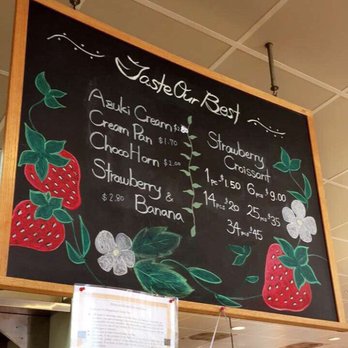 Taste Our Best
Azuki Cream
Cream Pan $1.70
Choco Horn $2.00
Strawberry &
Banana
$2.80
Strawberry
Croissant
1pc $1.50 6pcs $9.00
14pcs $20 25pcs $35
34pcs $45